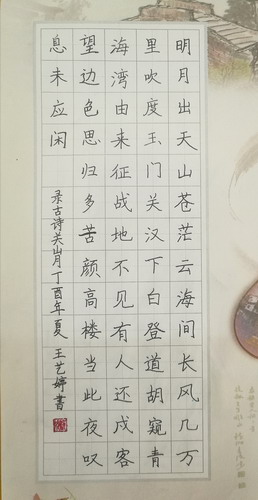 明月出天山苍茫云海间长风几万
里吹度玉门关汉下白登道胡窥青
海湾由来征战地不见有人还戍客
望边色思归多苦颜高楼当此夜叹
息未应闲
录古诗关山月丁酉年夏 王艺婷书